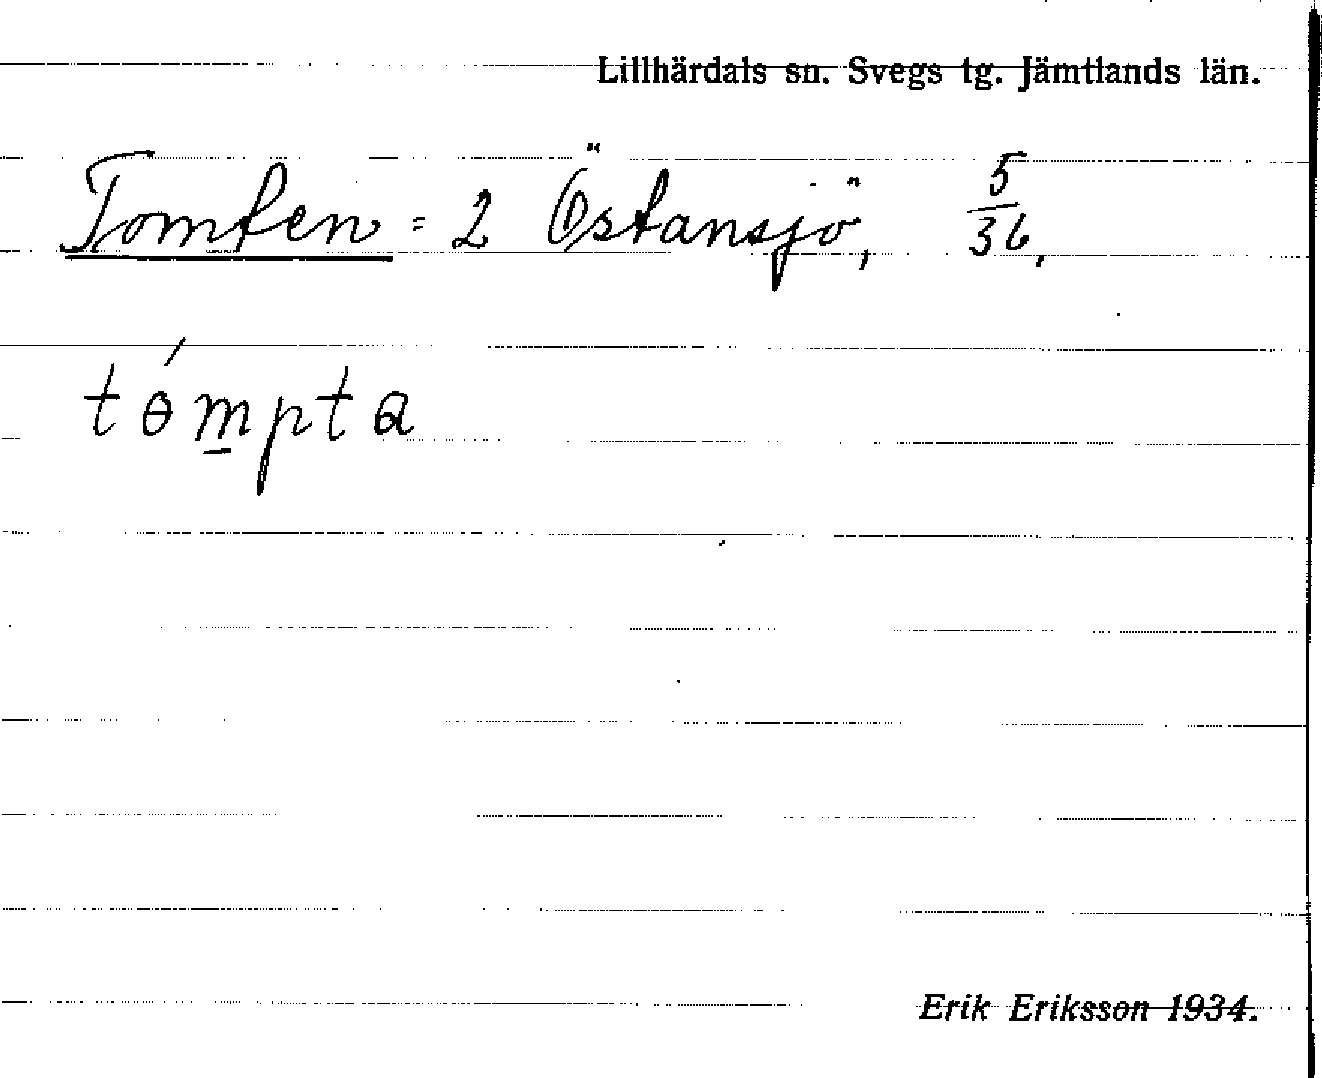 Lillhärdals sn. Svegs tg. Jämtlands län.
Tomten = 2 Östansjö, 5/36.
tɵ́m̲pta
Erik Eriksson 1934.